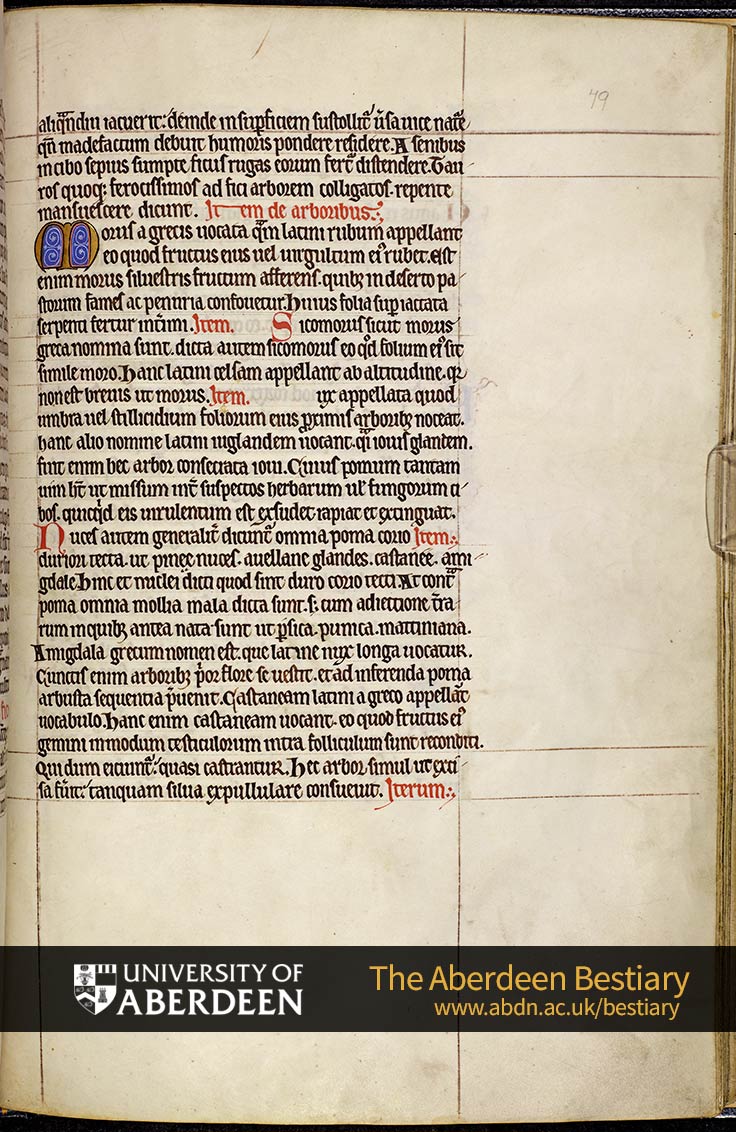 79
aliq̃ndiu iacuerit: deinde in suꝑficiem sustollit᷑ ũsa uice nat̃e
qñ madefactum debuit humoris pondere residere. A senibus
in cibo sepius sumpte ficus rugas eorum fert᷑ distendere. Tau
ros quoq; ferocissimos ad fici arborem colligatos. repente
mansuescere dicunt. Item de arboribus.
Morus a grecis uocata q̃m latini rubum appellant
eo quod fructus eius uel uirgultum ei᷒ rubet. est
enim morus siluestris fructum afferens. quibꝫ in deserto pa
storum fames ac penuria confouetur. huius folia suꝑ iactata
serpenti fertur int̃imi. Item. Sicomorus sicut morus
greca nomina sunt. dicta autem sicomorus eo qd̓ folium ei᷒ sit
simile moro. Hanc latini celsam appellant ab altitudine. qꝛ
non est breuis ut morus. Item. ux appellata quod
umbra uel stillicidium foliorum eius ꝓximis arboribꝫ noceat.
hanc alio nomine latini iuglandem uocant. q̃i iouis glandem.
fuit enim hec arbor consecrata ioui. Cuius pomum tantam
uim ht̃ ut missum int̃ suspectos herbarum ul̓ fungorum ci
bos. quicq̇d eis uirulentum est exsudet rapiat et extinguat.
Nuces autem generalit̃ dicunt᷑ omnia poma corio Item.
duriori tecta. ut pinee nuces. auellane glandes. castanee. ami
gdale Hinc et nuclei dicti quod sint duro corio tecti At cont̃
poma omnia mollia mala dicta sunt. s; cum adiectione t̃ra
rum in quibꝫ antea nata sunt ut ꝑsica. punica. mattiniana.
Amigdala grecum nomen est. que latine nux longa uocatur.
Cunctis enim arboribꝫ p̓or flore se uestit. et ad inferenda poma
arbusta sequentia p̃uenit. Castaneam latini a greco appellãt
uocabulo. Hanc enim castaneam uocant. eo quod fructus ei᷒
gemini in modum testiculorum intra folliculum sunt reconditi.
Qui dum eiciunt᷑: quasi castrantur. Hec arbor simul ut exci
sa fũit: tanquam silua expullulare consueuit. Iterum.
UNIVERSITY OF
ABERDEEN
The Aberdeen Bestiary
www.abdn.ac.uk/bestiary